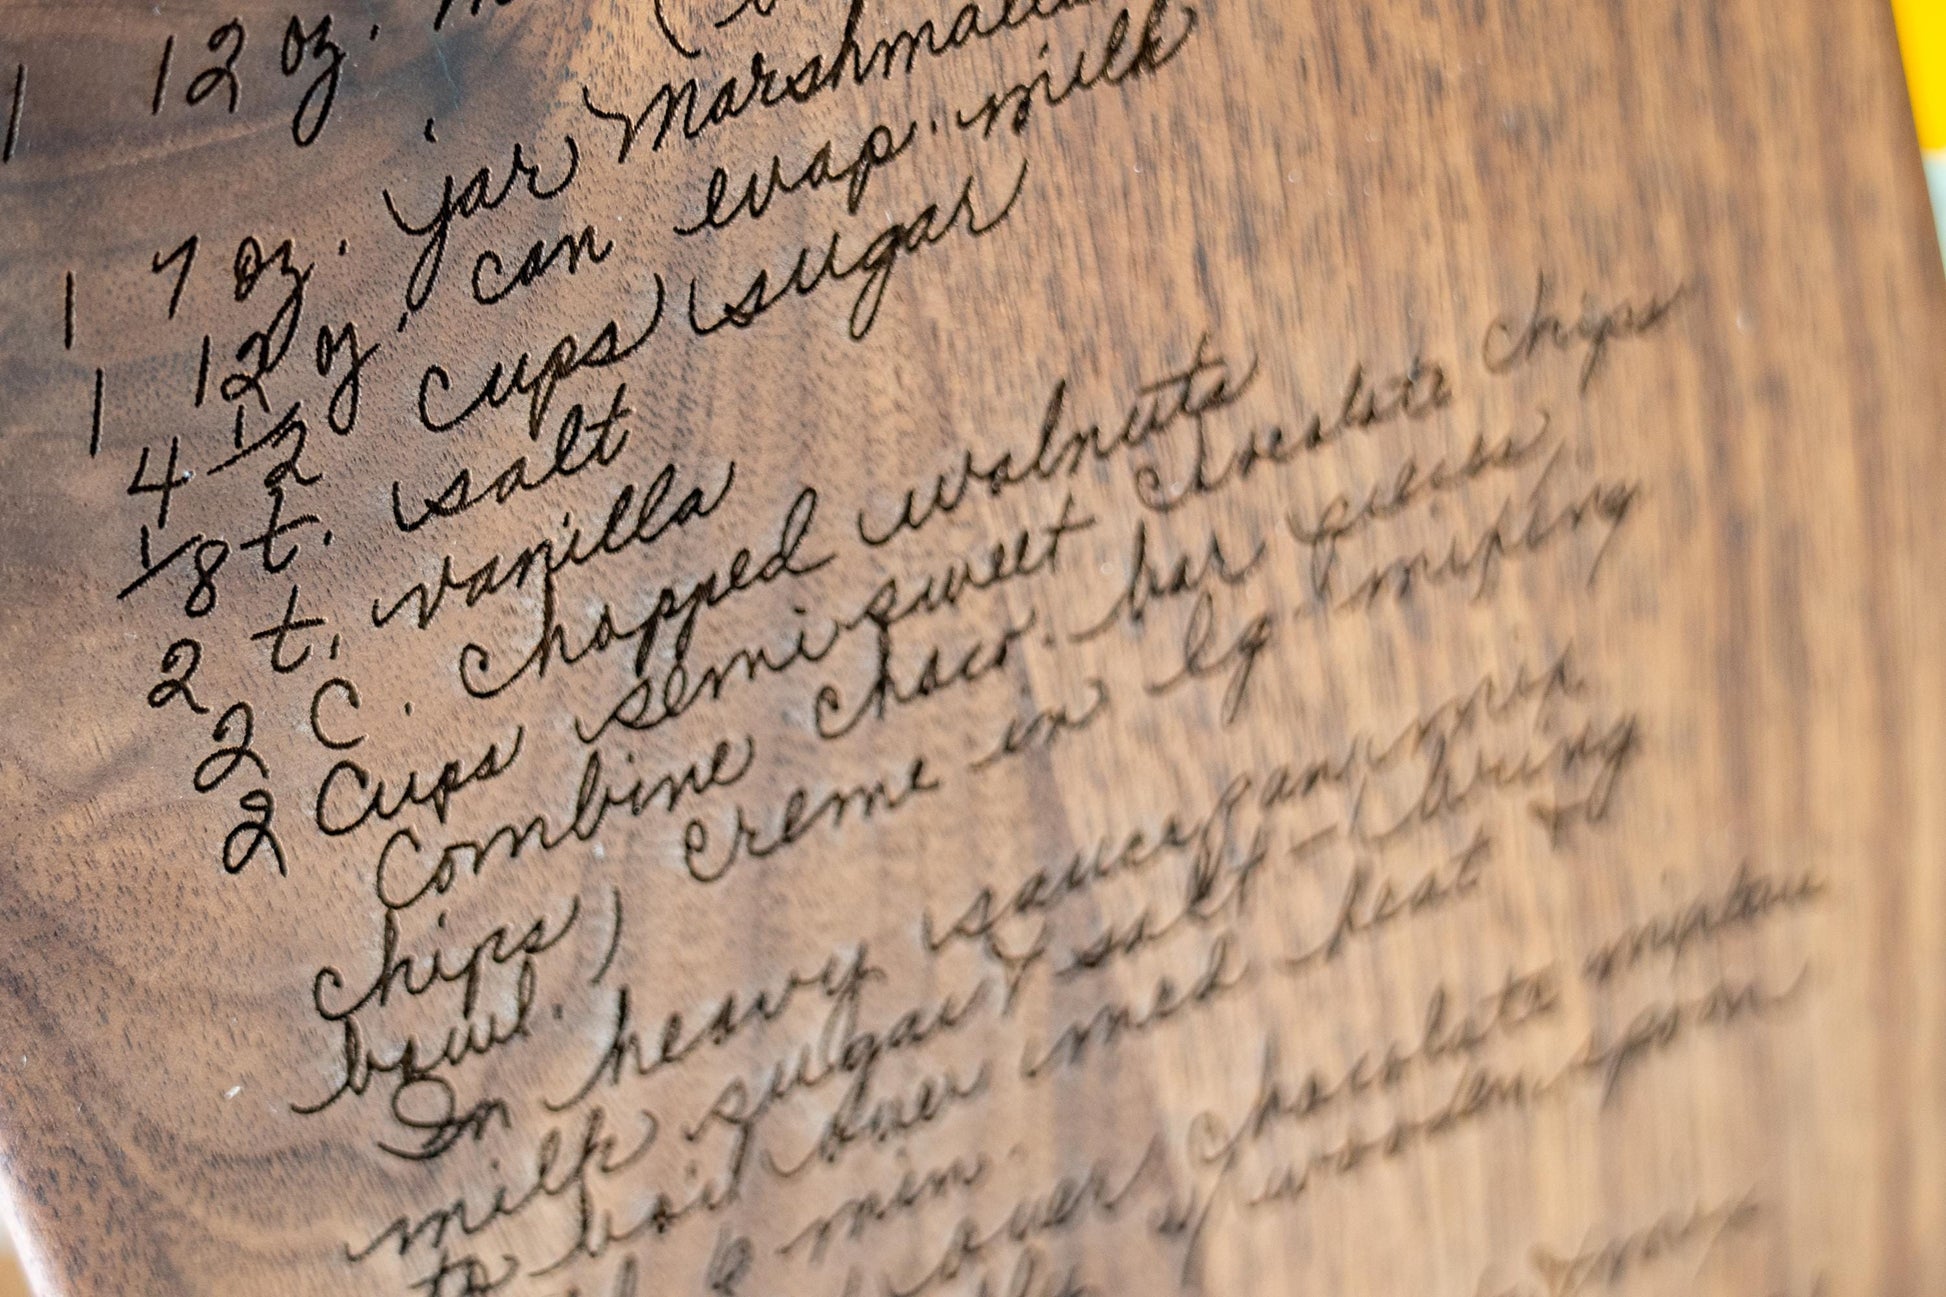 1 12 oz.
1 7 oz. jar Marshmallow
1 12 oz. can evap. milk
4 1/2 cups sugar
1/8 t. salt
2 t. vanilla
2 C. chopped walnuts
2 cups semi sweet chocolate chips
Combine choco. bar pieces,
chips, creme in lg mixing
bowl.
In heavy saucepan mix
milk sugar & salt - bring
to boil over med heat &
6 min.
over chocolate mixture
w/ wooden spoon